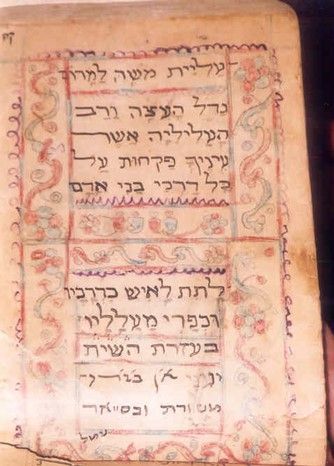 עליית משה למרום
גדל העצה ורב
העליליה אשר
עיניך פקחות על
כל דרכי בני אדם
לתת לאיש כדרכיו
וכפרי מעלליו
בעזרת השית
אן